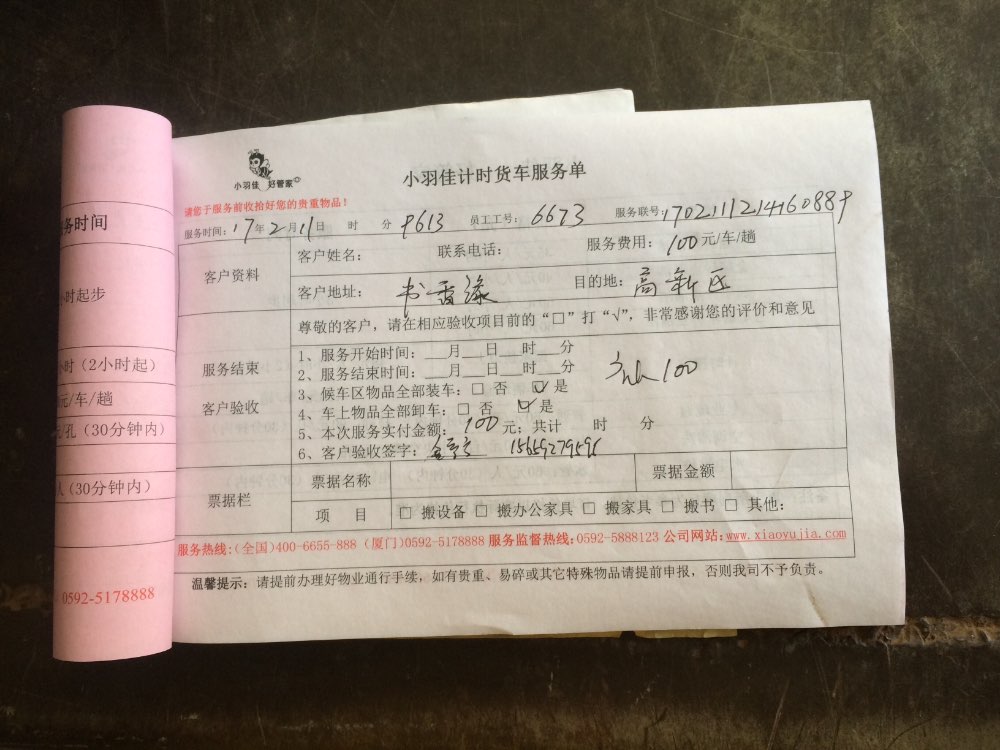 小羽佳 好管家
小羽佳计时货车服务单
请您于服务前收拾好您的贵重物品!
服务时间: 17年2月11日 时 分 9613 员工工号: 6673 服务联号: 1702111214160889
客户资料
客户姓名: 联系电话: 服务费用: 100元/车/趟
客户地址: 书香缘 目的地: 高新区
尊敬的客户,请在相应验收项目前的“□”打“√”,非常感谢您的评价和意见
服务结束
客户验收
1、服务开始时间:___月___日___时___分
2、服务结束时间:___月___日___时___分
3、候车区物品全部装车:□ 否 ☑ 是
4、车上物品全部卸车:□ 否 ☑ 是
100
5、本次服务实付金额: 100元;共计 时 分
6、客户验收签字:
票据栏
票据名称 票据金额
项 目 □ 搬设备 □ 搬办公家具 □ 搬家具 □ 搬书 □ 其他:
服务热线:(全国)400-6655-888 (厦门)0592-5178888 服务监督热线:0592-5888123 公司网站:www.xiaoyujia.com
温馨提示:请提前办理好物业通行手续,如有贵重、易碎或其它特殊物品请提前申报,否则我司不予负责。
务时间
小时起步
小时(2小时起)
元/车/趟
元/孔(30分钟内)
人(30分钟内)
0592-5178888